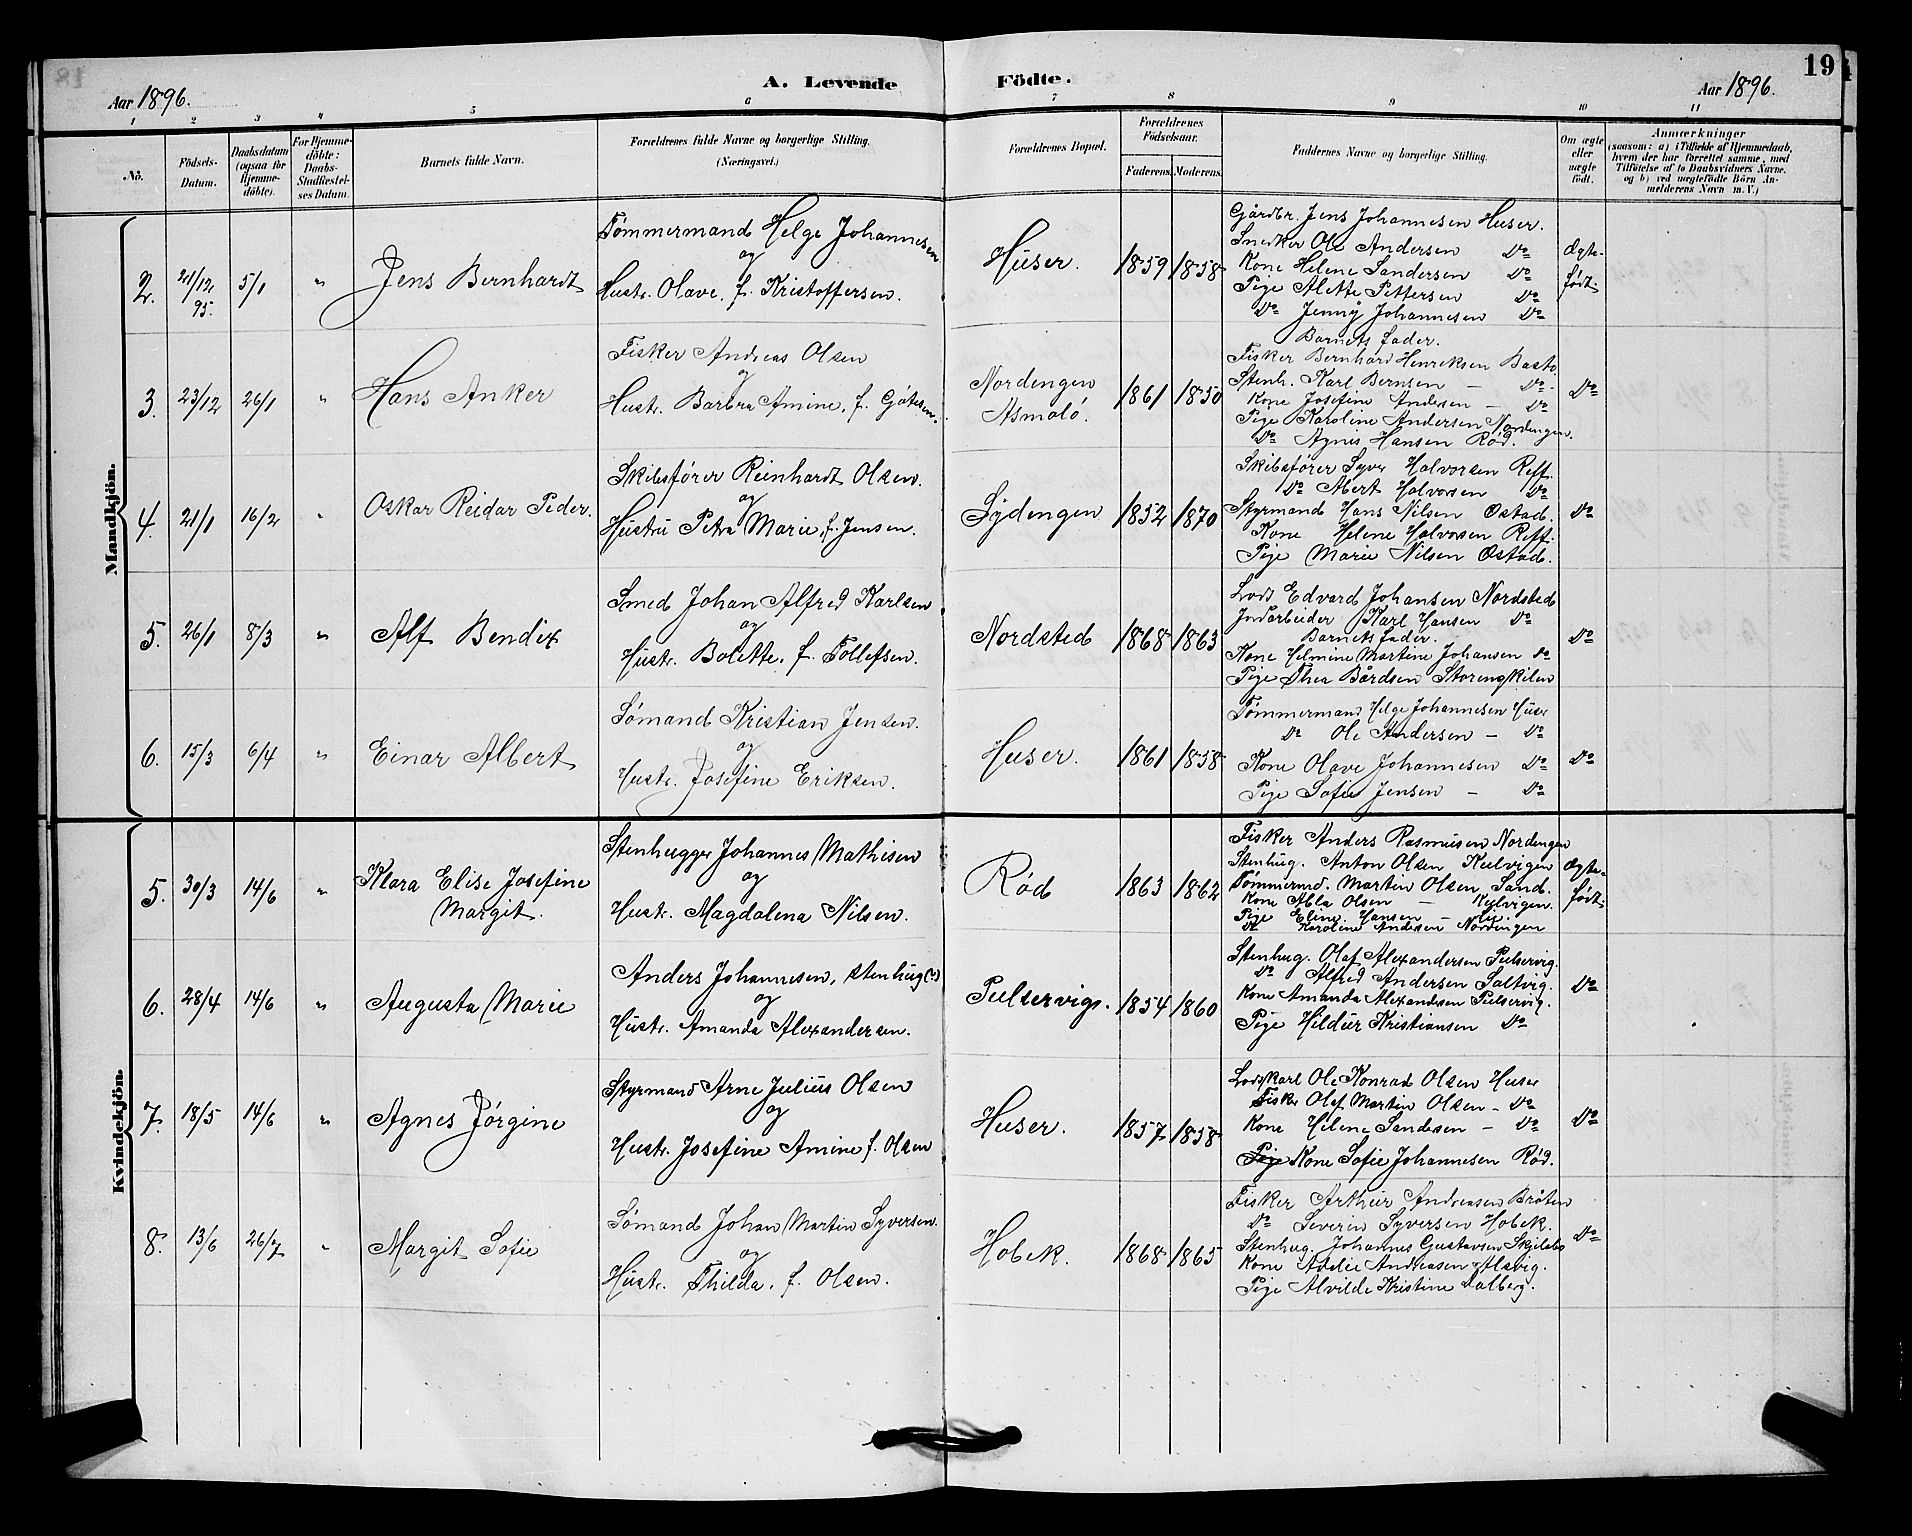 19
Aar 1896.
A. Levende Födte.
Aar 1896.
1 2 3 4 5 6 7 8 9 10 11
No.
Födsels-Datum.
Daabsdatum (ogsaa for Hjemmedöbte).
For Hjemmedöbte: Daabs-Stadfæstelses Datum.
Barnets fulde Navn.
Forældrenes fulde Navne og borgerlige Stilling.
(Næringsvei.)
Forældrenes Bopæl.
Forældrenes Födselsaar.
Faderens.
Moderens.
Faddernes Navne og borgerlige Stilling.
Om ægte eller uægte födt.
Anmærkninger
(saasom: a) i Tilfælde af Hjemmedaab,
hvem der har forrettet samme, med
Tilföielse af to Daabsvidners Navne.
og b) ved uægtefödte Börn An-
melderens Navn m. V.)
Mandkjön.
2. 21/12 95. 5/1 " Jens Bernhardt
Tømmermand Helge Johannesen
og
Hustr. Olave, f. Kristoffersen.
Huser. 1859 1858
Gårdbr. Jens Johannesen Huser.
Snedker Ole Andersen Do
Kone Helene Sandersen Do
Pige Alette Pettersen Do
Do Jenny Johannesen Do
Barnets fader.
Ægte-
født
3. 23/12 26/1 " Hans Anker
Fisker Andreas Olsen
og
Hustr. Barbra Amine, f. Götesen.
Nordengen
Asmalö.
1861 1850
Fisker Bernhard Henriksen Basto
Stenh. Karl Bernsen — Do
Kone Josefine Andersen — Do
Pige Karoline Andersen Nordengen.
Do Agnes Hansen Rød.
Do
4. 21/1 16/2 " Oskar Reidar Peder.
Skibsfører Reinhardt Olsen.
og
Hustru Petra Marie, f. Jensen.
Sydengen 1852 1870
Skibsfører Syver Halvorsen Reff.
Do Albert Halvorsen Do
Styrmand Hans Nilsen Østad.
Kone Helene Halvorsen Reff.
Pige Marie Nilsen Østad.
Do
5. 26/1 8/3 " Alf Bendix
Smed Johan Alfred Karlsen
og
Hustr. Bolette, f. Tollefsen.
Nordsted 1868 1863
Lods Edvard Johansen Nordsted
Jndarbeider Karl Hansen Do
Barnets fader.
Kone Helmine Martine Johansen Do
Pige Thea Bårdsen Storengkilen
Do
6. 15/3 6/4 " Einar Albert
Sømand Kristian Jensen.
og
Hustr. Josefine Eriksen.
Huser. 1861 1858
Tømmermand Helge Johannesen Huser
Do Ole Andersen — Do
Kone Olave Johannesen Do
Pige Sofie Jensen — Do
Do
Kvindekjön.
5. 30/3 14/6 " Klara Elise Josefine
Margit.
Stenhugger Johannes Mathisen
og
Hustr. Magdalena Nilsen.
Rød 1863 1862
Fisker Anders Rasmusen Nordengen
Stenhug. Anton Olsen Kulvigen
Tømmermd. Martin Olsen, Sand.
Kone Abla Olsen — Kylvigen.
Pige Eline Hansen —
Do Karoline Andersen Nordengen
Ægte-
født
6. 28/4 14/6 " Augusta Marie
Anders Johannesen, stenhug(?)
og
Hustr. Amanda Alexandersen.
Pulservig. 1854 1860
Stenhug. Olaf Alexandersen Pulservig.
Do Alfred Andersen Saltvig.
Kone Amanda Alexandersen Pulservig.
Pige Hildur Kristiansen Do
Do
7. 18/5 14/6 " Agnes Jørgine
Styrmand Arne Julius Olsen
og
Hustr. Josefine Amine f. Olsen
Huser. 1857 1858
Lodskarl Ole Konrad Olsen Huser
Fisker Olaf Martin Olsen — Do
Kone Helene Sandersen — Do
Pige Kone Sofie Johannesen Rød.
Do
8. 13/6 26/7 " Margit Sofie
Sømand Johan Martin Syversen.
og
Hustr. Thilda, f. Olsen.
Hobek. 1868 1865
Fisker Arthur Andreasen Bråten
Do Severin Syversen Hobek.
Stenhug. Johannes Gustavsen Skjelsbo
Kone Addie Andreasen
Pige Alvilde Kristine Dalberg.
Do